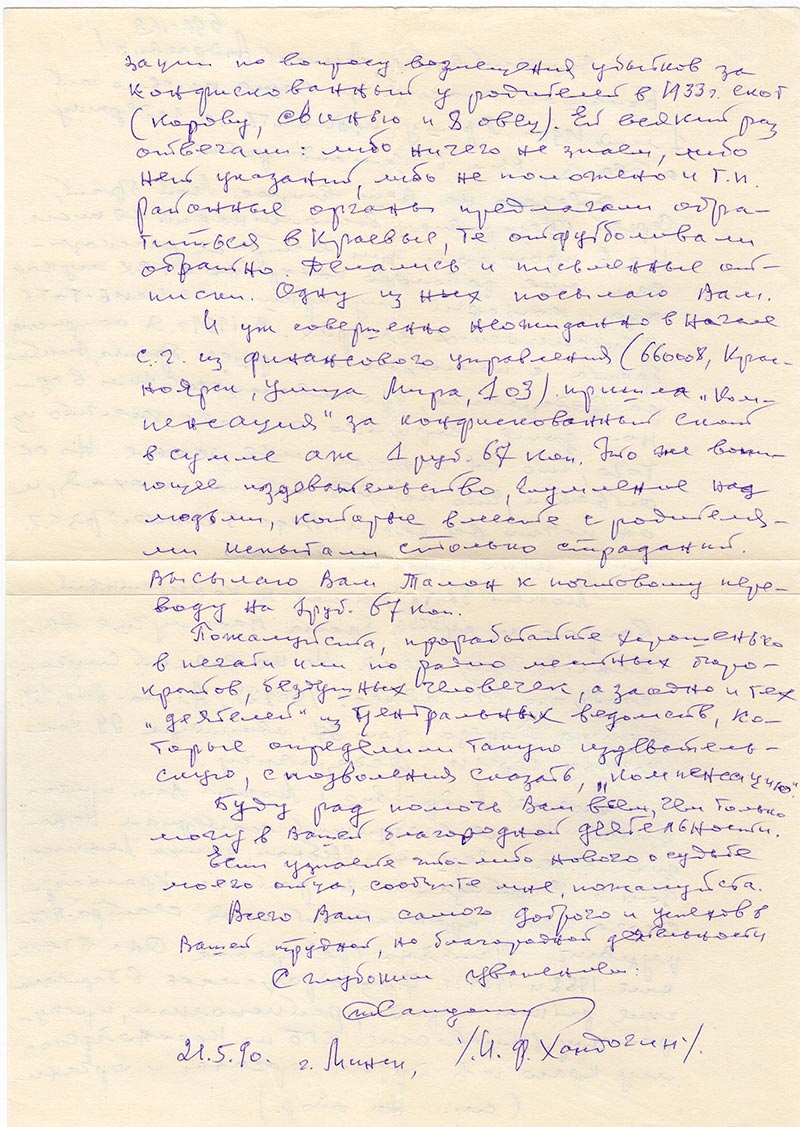 зации по вопросу возмещения убытков за
конфискованный у родителей в 1933 г. скот
(корову, свинью и 8 овец). Ей всякий раз
отвечали: либо ничего не знаем, либо
нет указаний, либо не положено и т.п.
Районные органы предлагали обра-
титься в Краевые, те отфутболивали
обратно. Делались и письменные от-
писки. Одну из них посылаю Вам.
И уж совершенно неожиданно в начале
с.г. из финансового управления (660008, Крас-
ноярск, улица Мира, 103) пришла „ком-
пенсация" за конфискованный скот
в сумме аж 1 руб. 67 коп. Это же вопи-
ющее издевательство, глумление над
людьми, которые вместе с родителя-
ми испытали столько страданий.
Высылаю Вам талон к почтовому пере-
воду на 1 руб. 67 коп.
Пожалуйста, проработайте хорошенько
в печати или по радио местных бюро-
кратов, бездушных человечек, а заодно и тех
„деятелей" из Центральных ведомств, ко-
торые определили такую издеватель-
скую, с позволения сказать, „компенсацию".
Буду рад помочь Вам всем, чем только
могу в Вашей благородной деятельности.
Если узнаете что либо нового о судьбе
моего отца, сообщите мне, пожалуйста.
Всего Вам самого доброго и успехов в
Вашей трудной, но благородной деятельности
С глубоким уважением:
21.5.90. г. Минск, /И. Ф. Хандогин/.